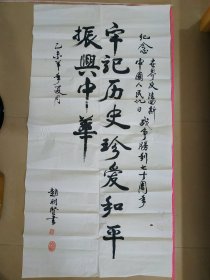 纪念世界反法西斯
中国人民抗日战争胜利七十周年
牢记历史珍爱和平
振興中華
乙未年夏月